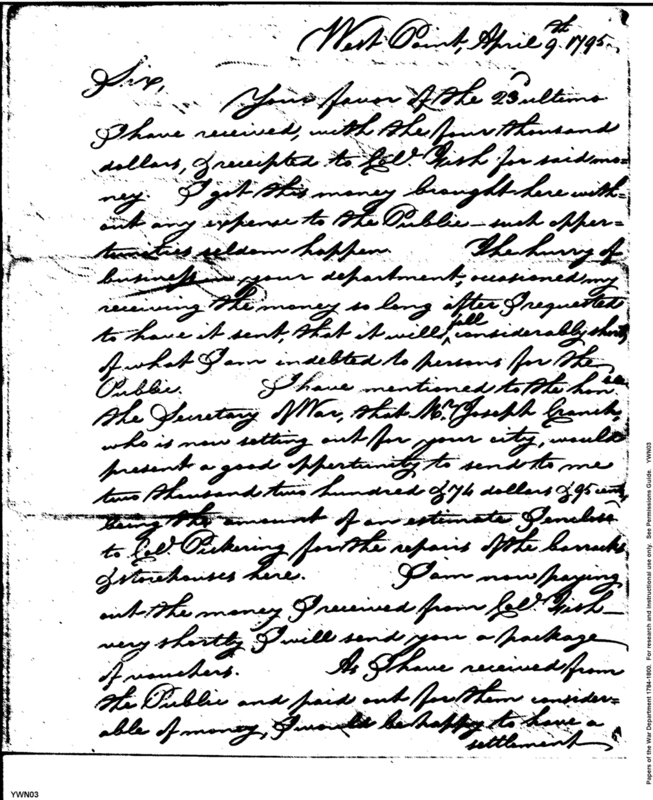 West Point, April 9th 1795.
Sir,
Your favor of the 23d ultimo
I have received, with the four thousand
dollars, & receipted to Col.o Fish for said mo=
ney I got this money brought here with=
out any expense to the Public – such opper=
tunities seldom happen The hurry of
business your department, occasioned my
receiving the money so long after I requested
to have it sent, that it will fall considerably short
of what I am indebted to persons for the
Public. I have mentioned to the hon.ble
the Secretary of War, that Mr. Joseph Cranch
who is now setting out for your city, would
present a good oppertunity to send to me
two thousand two hundred & 74 dollars & 95 cents,
being the amount of an estimate I enclose
to Col.o Pickering for the repairs of the barracks
& storehouses here. I am now paying
out the money I received from Col.o Fish –
very shortly I will send you a package
of vouchers. As I have received from
the Public and paid out for them consider=
able of money, I would be happy to have a
settlement
Papers of the War Department 1784-1800. For research and instructional use only. See Permissions Guide. YWN03
YWN03